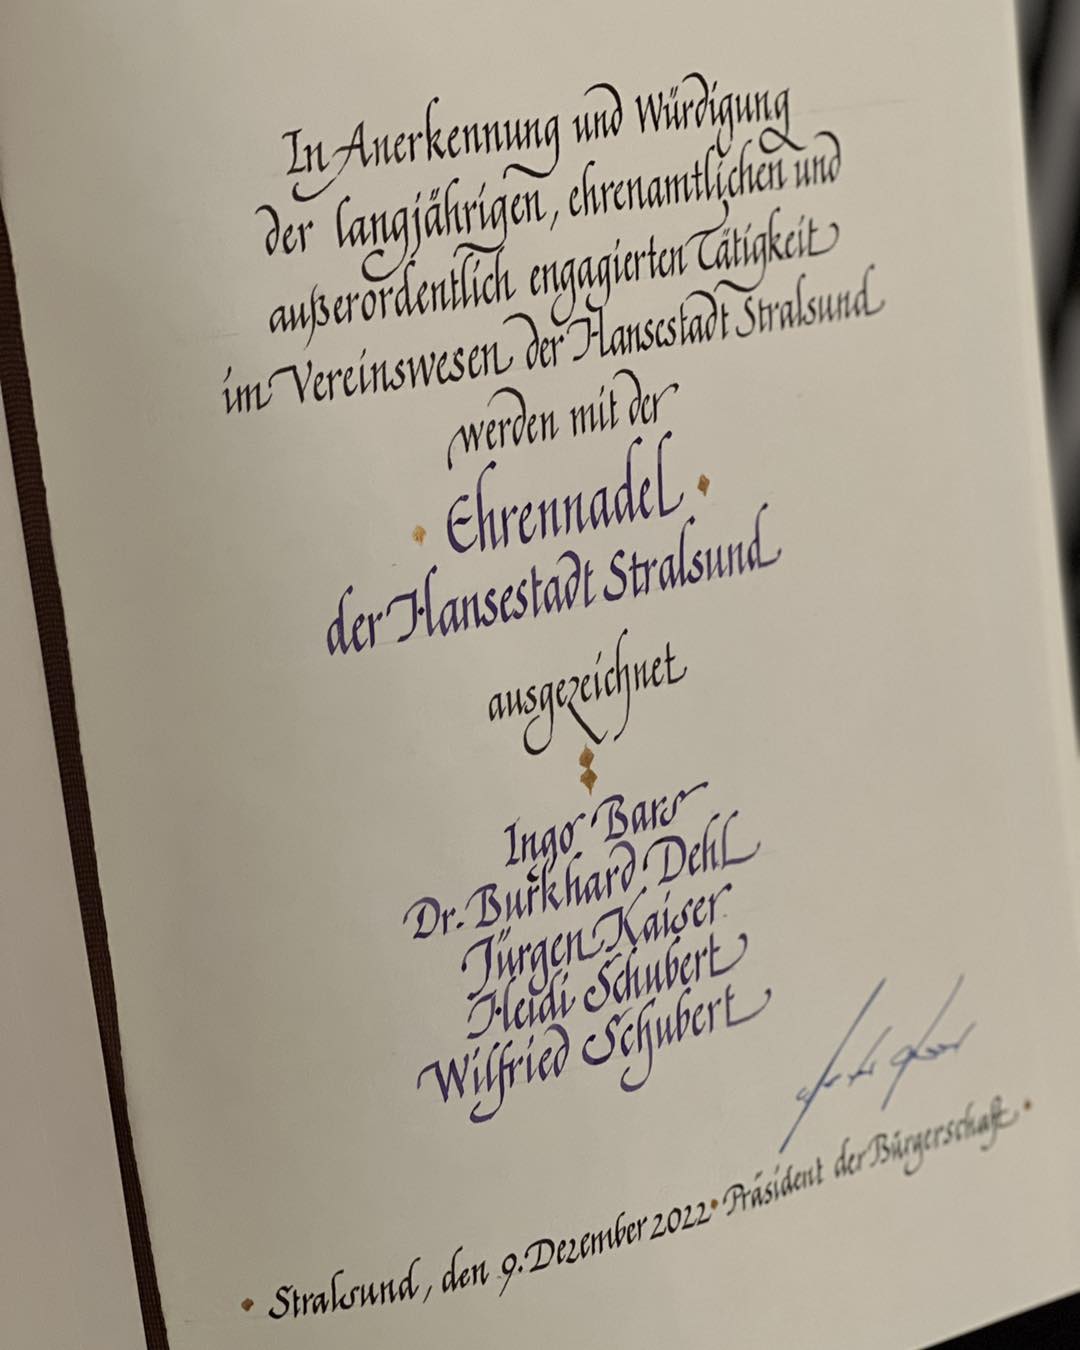 In Anerkennung und Würdigung
der langjährigen, ehrenamtlichen und
außerordentlich engagierten Tätigkeit
im Vereinswesen der Hansestadt Stralsund
werden mit der
Ehrennadel
der Hansestadt Stralsund
ausgezeichnet
Ingo Bars
Dr. Burkhard Dehl
Jürgen Kaiser
Heidi Schubert
Wilfried Schubert
Stralsund, den 9. Dezember 2022 · Präsident der Bürgerschaft ·